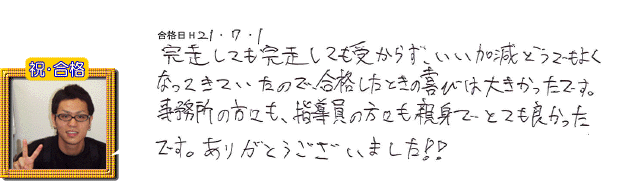 合格日 H 21・7・1
完走しても完走しても受からず、いい加減どうでもよく
なってきていたので、合格したときの喜びは大きかったです。
事務所の方々も、指導員の方々も親身でとても良かった
です。ありがとうございました!!
祝・合格